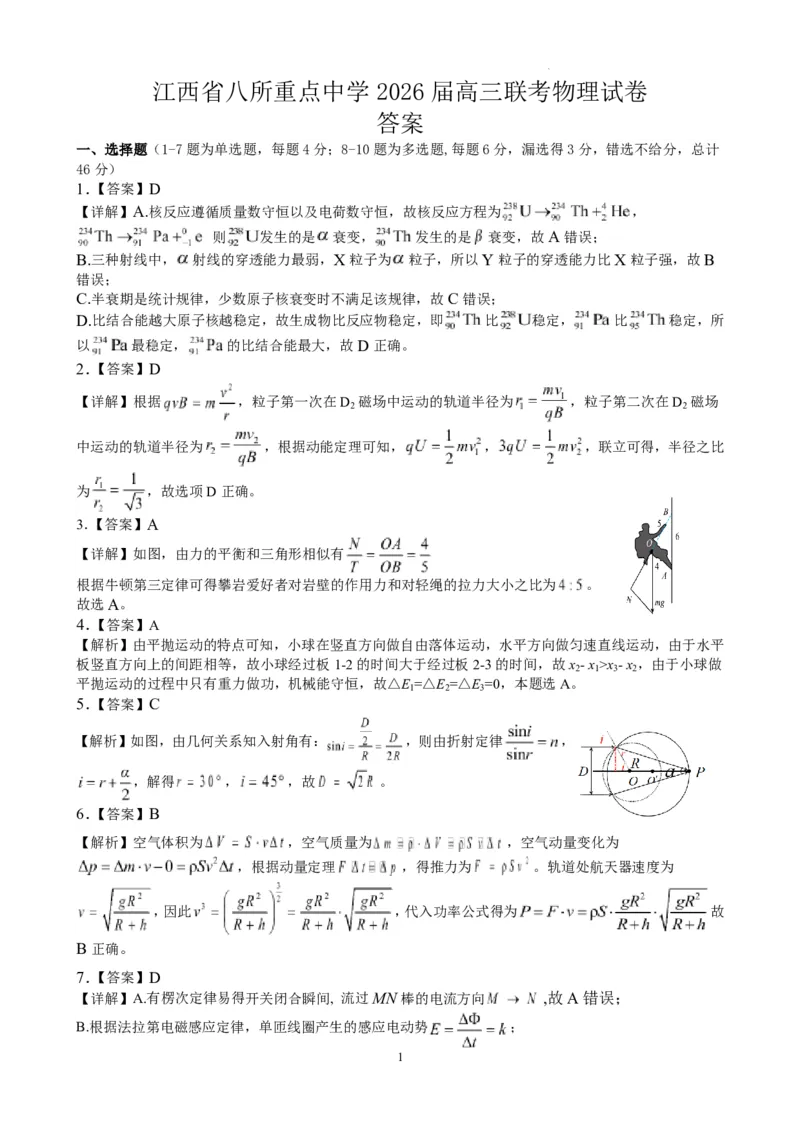 江西省八所重点中学 2026 届高三联考物理试卷
答案
一、选择题（1-7 题为单选题，每题 4 分；8-10 题为多选题,每题 6 分，漏选得 3 分，错选不给分，总计
46 分）
1.【答案】D
【详解】A.核反应遵循质量数守恒以及电荷数守恒，故核反应方程为 $^{238}_{92}$U→$^{234}_{90}$Th+$^{4}_{2}$He，
$^{234}_{90}$Th→$^{234}_{91}$Pa+$^{0}_{-1}$e 则 $^{238}_{92}$U发生的是α衰变，$^{234}_{90}$Th 发生的是β 衰变，故 A 错误；
B.三种射线中，α射线的穿透能力最弱，X 粒子为α 粒子，所以 Y 粒子的穿透能力比 X 粒子强，故 B
错误；
C.半衰期是统计规律，少数原子核衰变时不满足该规律，故 C 错误；
D.比结合能越大原子核越稳定，故生成物比反应物稳定，即 $^{234}_{90}$Th 比 $^{238}_{92}$U稳定，$^{234}_{91}$Pa 比 $^{234}_{95}$Th 稳定，所
以 $^{234}_{91}$Pa 最稳定，$^{234}_{91}$Pa 的比结合能最大，故 D 正确。
2.【答案】D
【详解】根据 $qvB=m\frac{v^2}{r}$，粒子第一次在D$_2$ 磁场中运动的轨道半径为$r_1=\frac{mv_1}{qB}$，粒子第二次在D$_2$ 磁场
中运动的轨道半径为$r_2=\frac{mv_2}{qB}$，根据动能定理可知，$qU=\frac{1}{2}mv_1^2$，$3qU=\frac{1}{2}mv_2^2$，联立可得，半径之比
为 $\frac{r_1}{r_2}=\frac{1}{\sqrt{3}}$，故选项D 正确。
3.【答案】A
【详解】如图，由力的平衡和三角形相似有 $\frac{N}{T}=\frac{OA}{OB}=\frac{4}{5}$
根据牛顿第三定律可得攀岩爱好者对岩壁的作用力和对轻绳的拉力大小之比为 4:5 。
故选 A。
B
5
6
O
4
A
N
mg
4.【答案】A
【解析】由平抛运动的特点可知，小球在竖直方向做自由落体运动，水平方向做匀速直线运动，由于水平
板竖直方向上的间距相等，故小球经过板 1-2 的时间大于经过板 2-3 的时间，故 x$_2$- x$_1$>x$_3$- x$_2$，由于小球做
平抛运动的过程中只有重力做功，机械能守恒，故△E$_1$=△E$_2$=△E$_3$=0，本题选 A。
5.【答案】C
【解析】如图，由几何关系知入射角有：$\sin i=\frac{\frac{D}{2}}{R}=\frac{D}{2R}$，则由折射定律 $\frac{\sin i}{\sin r}=n$，
$i=r+\frac{α}{2}$，解得 r=30°，i=45°，故 $D=\sqrt{2}R$ 。
i
r
i
R
D
O
α
α
P
6.【答案】B
【解析】空气体积为$ΔV=S·vΔt$，空气质量为$Δm=ρ·ΔV=ρSvΔt$，空气动量变化为
$Δp=Δm·v-0=ρSv^2Δt$，根据动量定理 $FΔt=Δp$，得推力为 $F=ρSv^2$ 。轨道处航天器速度为
$v=\sqrt{\frac{gR^2}{R+h}}$，因此$v^3=\left(\frac{gR^2}{R+h}\right)^{\frac{3}{2}}=\frac{gR^2}{R+h}·\sqrt{\frac{gR^2}{R+h}}$，代入功率公式得为 $P=F·v=ρS·\frac{gR^2}{R+h}·\sqrt{\frac{gR^2}{R+h}}$ 故
B 正确。
7.【答案】D
【详解】A.有楞次定律易得开关闭合瞬间, 流过MN棒的电流方向M → N ,故 A 错误；
B.根据法拉第电磁感应定律，单匝线圈产生的感应电动势$E=\frac{ΔΦ}{Δt}=k$；
1